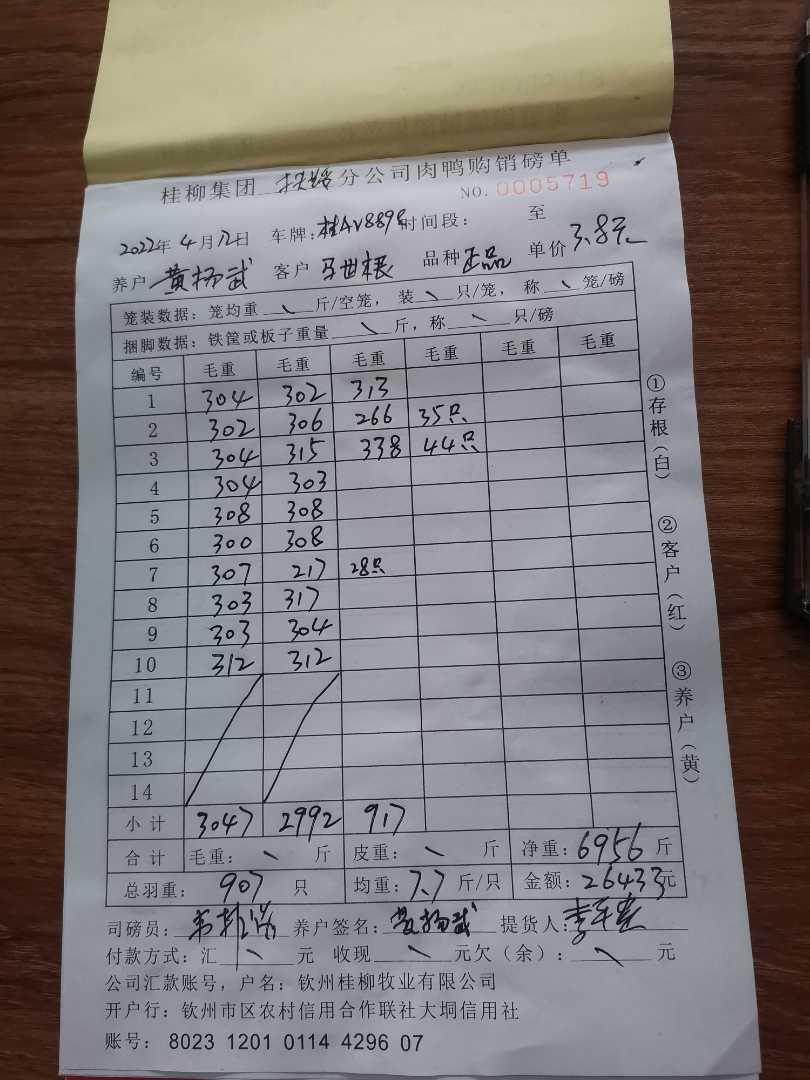 桂柳集团 扶绥 分公司肉鸭购销磅单
NO. 0005719
2022年 4月12日 车牌: 桂AV8898 时间段: 至
养户 黄杨武 客户 马世根 品种 正品 单价 3.8元
笼装数据: 笼均重 \ 斤/空笼, 装 \ 只/笼, 称 \ 笼/磅
捆脚数据: 铁筐或板子重量 \ 斤, 称 \ 只/磅
编号 毛重 毛重 毛重 毛重 毛重 毛重
1 304 302 313
2 302 306 266 35只
3 304 315 338 44只
4 304 303
5 308 308
6 300 308
7 307 217 28只
8 303 317
9 303 304
10 312 312
11
12
13
14
小计 3047 2992 917
合计 毛重: \ 斤 皮重: \ 斤 净重: 6956 斤
总羽重: 907 只 均重: 7.7 斤/只 金额: 26433元
司磅员: 养户签名: 黄杨武 提货人:
付款方式: 汇 \ 元 收现 \ 元欠(余): \ 元
公司汇款账号, 户名: 钦州桂柳牧业有限公司
开户行: 钦州市区农村信用合作联社大垌信用社
账号: 8023 1201 0114 4296 07
①存根(白)
②客户(红)
③养户(黄)